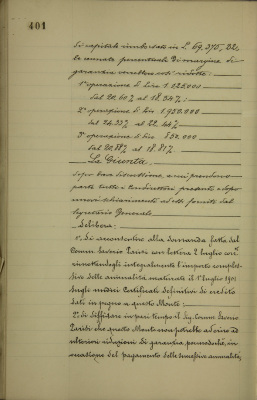 401
di capitale rimborsato in L. 69,375,32,
le annate percentuali di margine di
garanzia verrebbero così ridotte:
1ª operazione di Lire 1.125.000
dal 20.60% al 18.34%;
2ª operazione di Lire 1.950.000
dal 24.33% al 22.44%
3ª operazione di Lire 850.000
dal 20.88% al 18.81%
La Giunta
dopo breve discussione, a cui prendono
parte tutti i Conduttori presenti e dopo
nuovi schiarimenti ad essi forniti dal
Segretario Generale
Delibera:
1º. Di acconsentire alla domanda fatta dal
Comm. Saverio Parisi con lettera 2 luglio corr.
rimettendogli integralmente l'importo comples-
sivo delle annualità maturate il 1º luglio 1901
sugli undici Certificati definitivi di credito
dati in pegno a questo Monte;
2º. di diffidare in pari tempo il Sig. Comm. Saverio
Parisi che questo Monte non potrebbe aderire ad
ulteriori riduzioni di garanzia, percentuale, in
occasione del pagamento delle successive annualità,